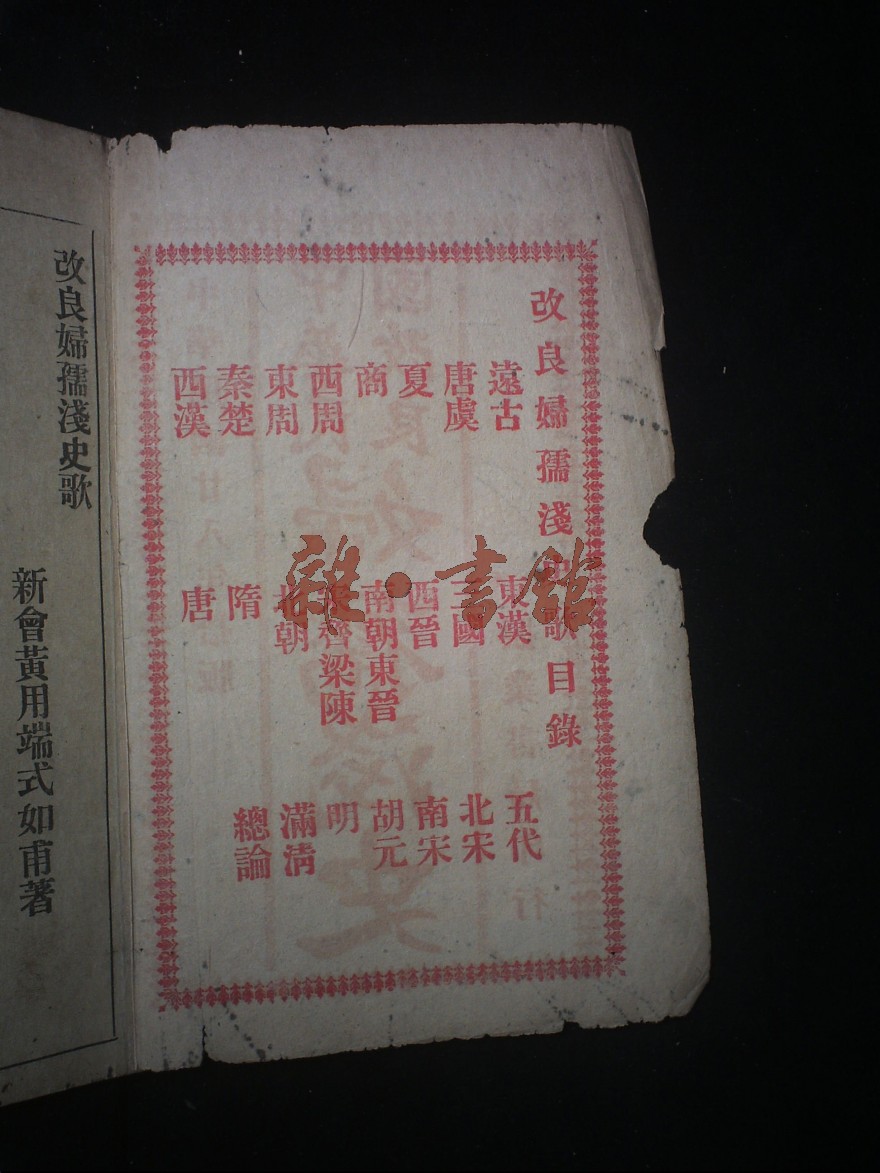 改良婦孺淺史歌目錄
遠古
唐虞
夏
商
西周
東周
秦楚
西漢
東漢
三國
西晉
南朝東晉
宋齊梁陳
北朝
隋
唐
五代
北宋
南宋
胡元
明
滿淸
總論
改良婦孺淺史歌
新會黃用端式如甫著
雜·書館